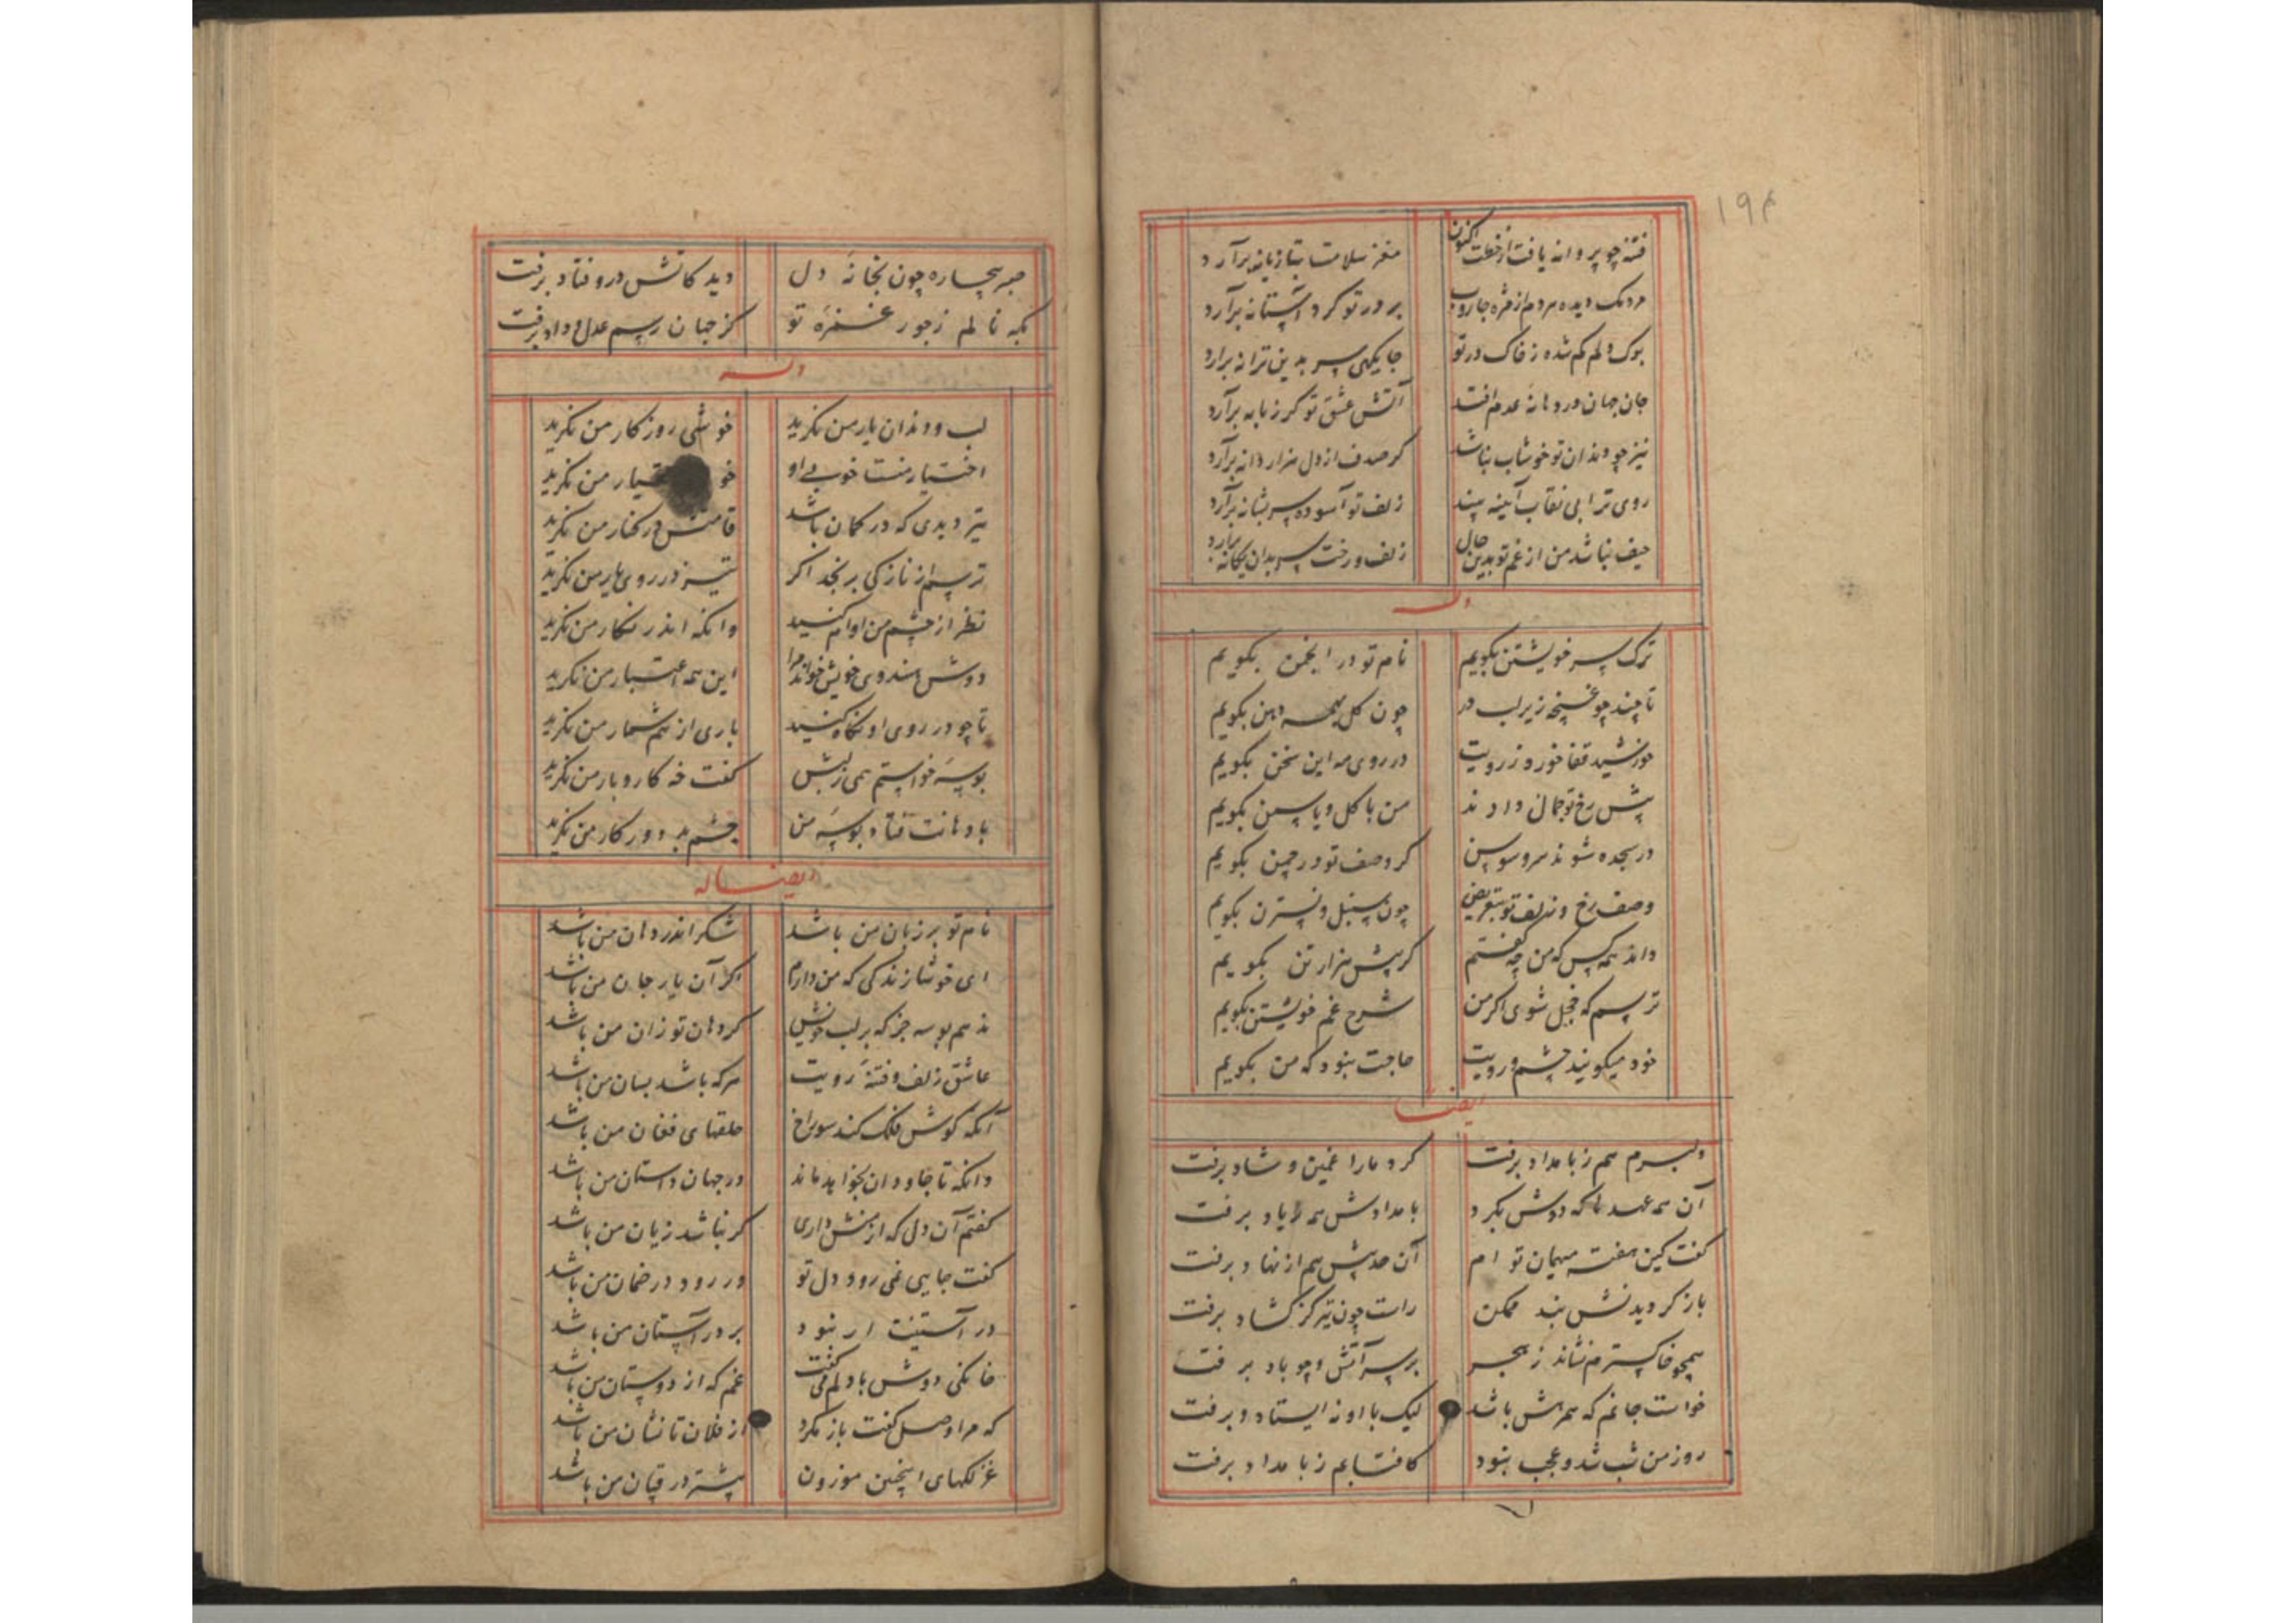 ۱۹۴
فتنه چو پروانه یافت از رخت اکنون مغز سلامت بتازیانه برآرد
مردمک دیده مردم از مژه جاروب بر در تو کرد آستانه برآرد
بوک دلم کم شده ز خاک در تو جایکهی سر بدین ترانه برارد
جان جهان در دهانهٔ عدم افتد آتش عشق تو کر زبانه برآرد
نیز چو دندان تو خوشاب نباشد کر صدف از دل هزار دانه برآرد
روی ترا بی نقاب آینه بیند زلف تو آسوده سر بشانه برآرد
حیف نباشد من از غم تو بدین حال زلف و رخت سر بدان یکانه برارد
وله
ترک سر خویشتن بکویم نام تو در انجمن بکویم
تا چند چو غنچه زیر لب در چون کل همه دهن بکویم
خورشید قفا خورد ز رویت در روی مه این سخن بکویم
پیش رخ تو جمال دارند من با کل و یاسمن بکویم
در سجده شوند سرو و سوسن کر وصف تو در چمن بکویم
وصف رخ و زلف تو بتعریض چون سنبل و نسترن بکویم
داند همه کس که من چه کفتم کر پیش هزار تن بکویم
ترسم که خجل شوی اکر من شرح غم خویشتن بکویم
خود میکویند چشم و رویت حاجت نبود که من بکویم
ایضا
دلبرم هم ز بامداد برفت کرد مارا غمین و شاد برفت
آن همه عهدها که دوش بکرد بامدادش همه ز یاد برفت
کفت کین هفته میهمان تو ام آن حدیثش هم از نهاد برفت
باز کردیدنش نبد ممکن راست چون تیر کز کشاد برفت
همچو خاکسترم نشاند ز هجر بر سر آتش و چو باد برفت
خواست جانم که همرهش باشد لیک با او نه ایستاد و برفت
روز من شب شد و عجب نبود کافتابم ز بامداد برفت
صبر بیچاره چون بخانهٔ دل دید کاتش درو فتاد برفت
بکه نالم ز جور غمزهٔ تو کز جهان رسم عدل و داد برفت
وله
لب و دندان یار من نکرید خوشی روزکار من نکرید
اختیار منست خوبی او خو یار من نکرید
تیر دیدی که در کمان باشد قامتش در کنار من نکرید
ترسم از نازکی برنجد اکر تیز در روی یار من نکرید
نظر از چشم من اوام کنید وانکه اندر نکار من نکرید
دوش هندوی خویش خواند مرا این همه اعتبار من نکرید
تا چو در روی او نکاه کنید باری از هم شمار من نکرید
بوسهٔ خواستم همی ز لبش کفت خه کار و بار من نکرید
با دهانت فتاد بوسهٔ من چشم بد دور کار من نکرید
ایضا له
نام تو بر زبان من باشد شکر اندر دهان من باشد
ای خوشا زندکی که من دارم اکر آن یار جان من باشد
ندهم بوسه جز که بر لب خویش کر دهان تو زان من باشد
عاشق زلف و فتنهٔ رویت هرکه باشد بسان من باشد
آنکه کوش فلک کند سوراخ حلقهای فغان من باشد
وانکه تا جاودان بخواهد ماند در جهان داستان من باشد
کفتم آن دل که از منش داری کر نباشد زیان من باشد
کفت جایی نمی رود دل تو ور رود در ضمان من باشد
در آستینت ار نبود بر در آستان من باشد
خانکی دوش با دلم می کفت غم که از دوستان من باشد
که مرا وصل کفت باز مکرد از فلان تا نشان من باشد
غزلکهای اینچنین موزون بیشتر در میان من باشد